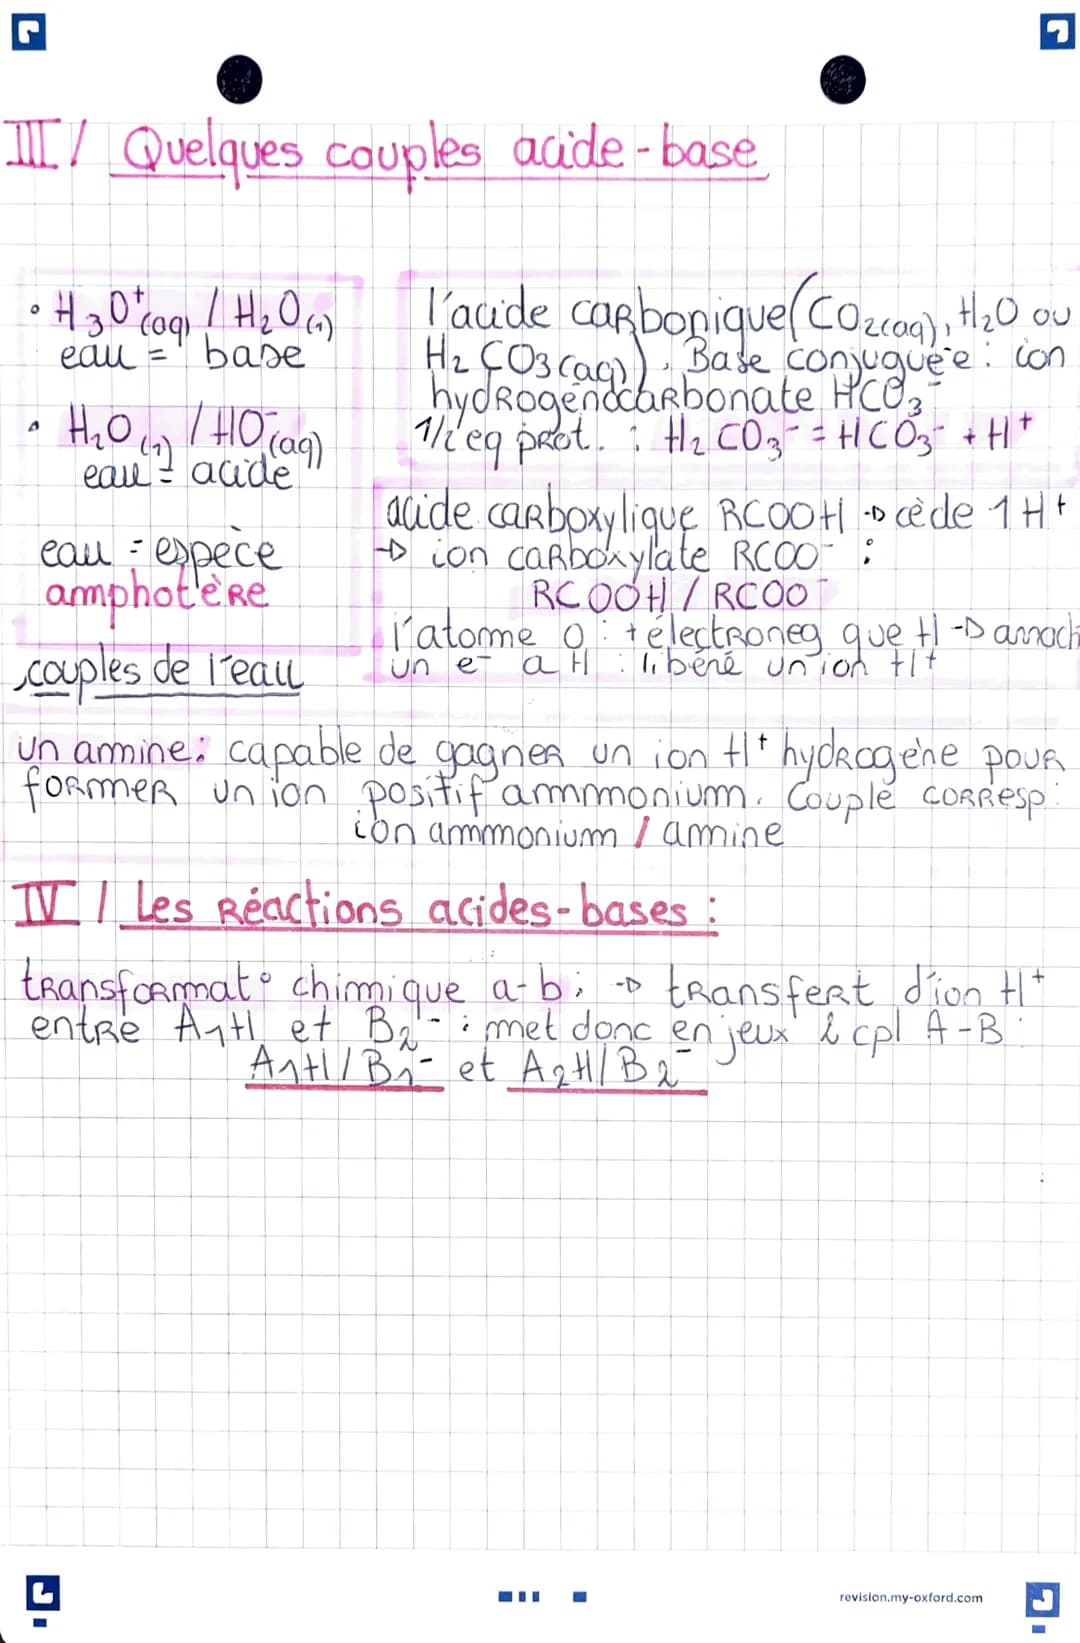 III / Quelques couples acide-base
• H3O+(aq) / H2O(l)
eau = base
• H2O(l) / HO-(aq)
eau = acide
eau = espèce
amphotère
couples de l'eau
l'acide carbonique (CO2(aq), H2O ou
H2CO3(aq)). Base conjuguée : ion
hydrogénocarbonate HCO3-
1/2 éq prot. : H2CO3- = HCO3- + H+
acide carboxylique RCOOH → cède 1 H+
→ ion carboxylate RCOO- :
RCOOH / RCOO-
l'atome O : + électronég que H → arrach
un e- a H : libéré un ion H+
un amine : capable de gagner un ion H+ hydrogène pour
former un ion positif ammmonium. Couple corresp :
ion ammmonium / amine
IV / Les Réactions acides-bases :
transformat° chimique a-b ; → transfert d'ion H+
entre A1H et B2- : met donc en jeux 2 cpl A-B :
A1H/B1- et A2H/B2-
revision.my-oxford.com